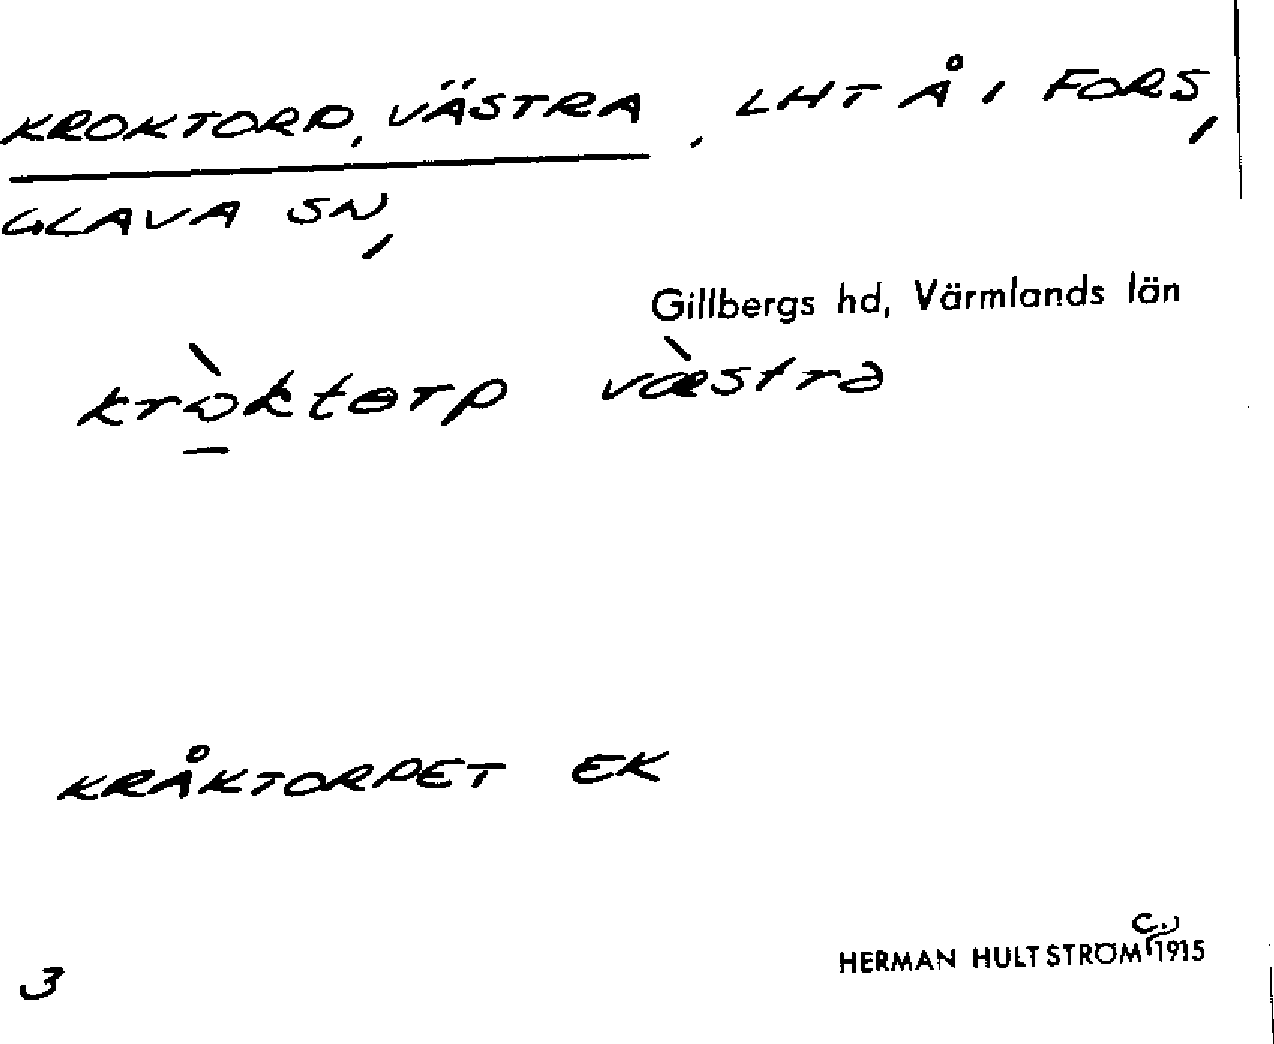 KROKTORP, VÄSTRA, LHT Å I FORS,
GLAVA SN,
Gillbergs hd, Värmlands län
kròktɵrp væ̀strə
KRÅKTORPET EK
C.
HERMAN HULTSTRÖM 1915
3